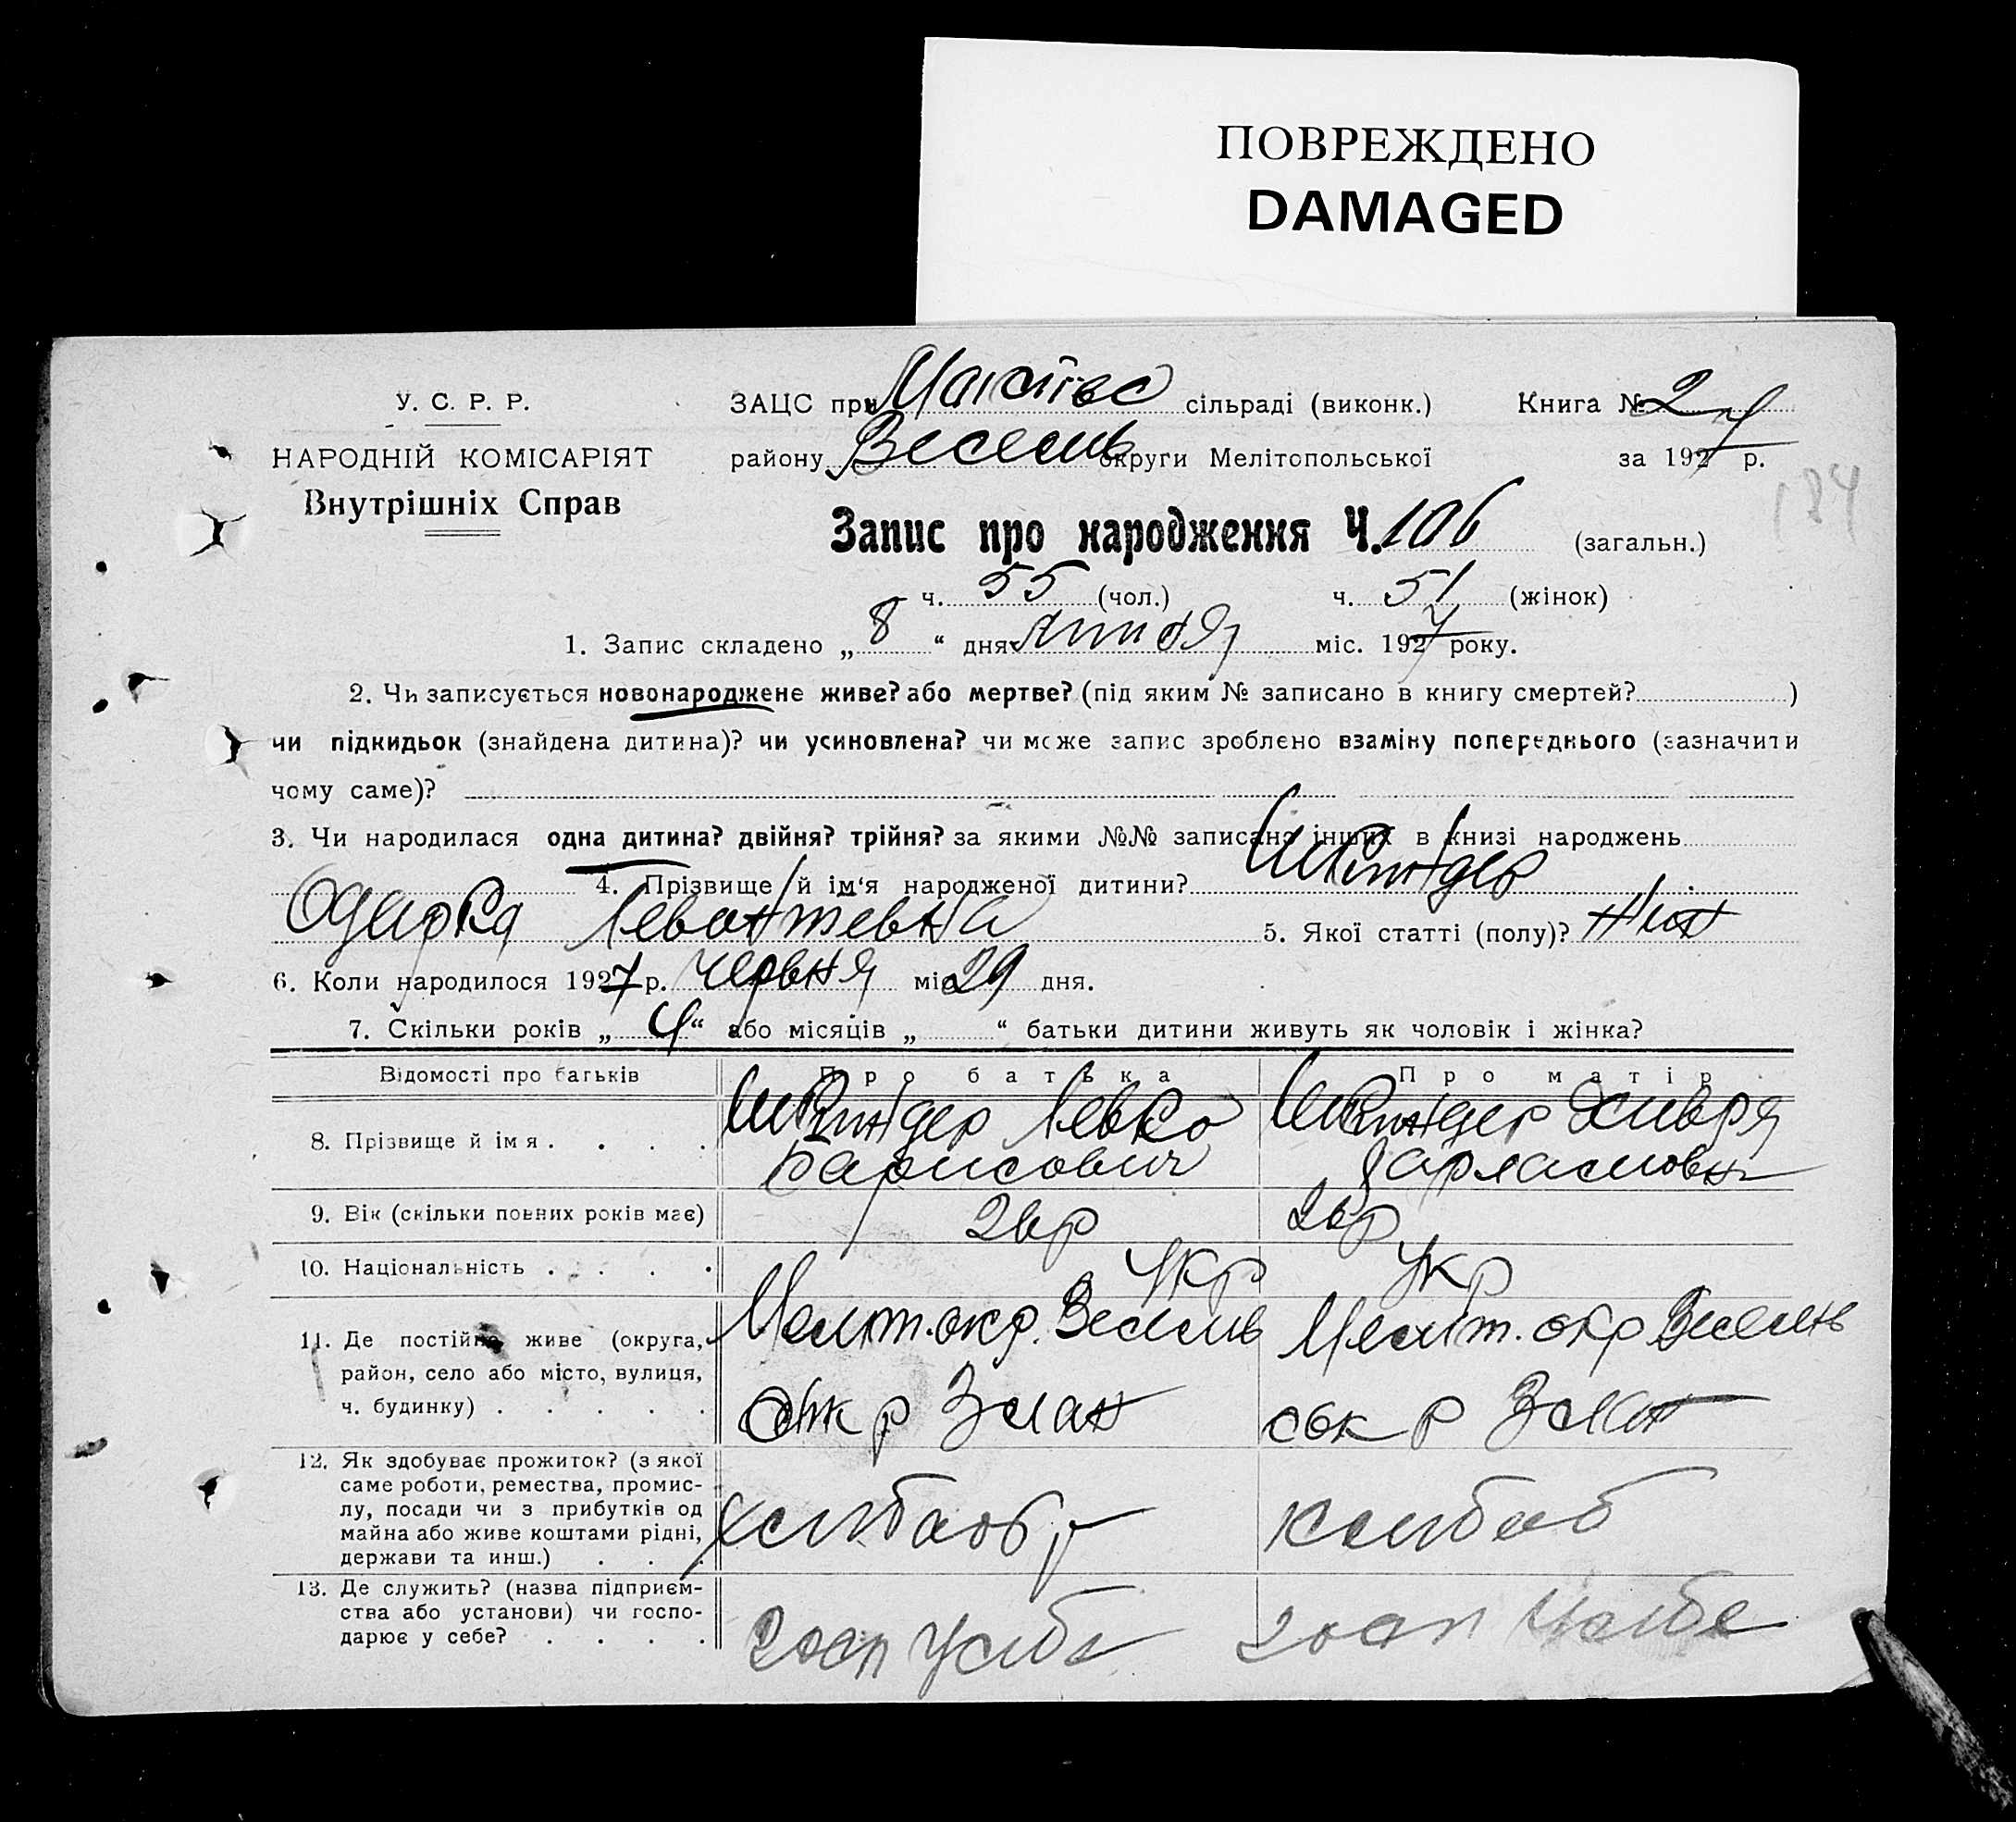 ПОВРЕЖДЕНО
DAMAGED
У. С. Р. Р.
НАРОДНІЙ КОМІСАРІЯТ
Внутрішніх Справ
ЗАЦС при сільраді (виконк.) Книга № 2
району Веселів округи Мелітопольської за 1927 р.
184
Запис про народження Ч. 106 (загальн.)
ч. 55 (чол.) ч. 51 (жінок)
1. Запис складено „ 8 “ дня липня міс. 1927 року.
2. Чи записується новонароджене живе? або мертве? (під яким № записано в книгу смертей? )
чи підкидьок (знайдена дитина)? чи усиновлена? чи може запис зроблено взаміну попереднього (зазначити
чому саме)?
3. Чи народилася одна дитина? двійня? трійня? за якими №№ записано інших в книзі народжень
4. Прізвище й ім‘я народженої дитини? Шкіндер
Одарка Левонтевна 5. Якої статті (полу)? жін
6. Коли народилося 1927 р. червня міс 29 дня.
7. Скільки років „ 4 “ або місяців „ “ батьки дитини живуть як чоловік і жінка?
Відомості про батьків Про батька Про матір
8. Прізвище й імя . . . . Шкіндер Левко Шкіндер Хивря
Барисович Варламовн
9. Вік (скільки повних років має) 26р 26р
10. Національність . . . . Укр Укр
11. Де постійно живе (округа, Меліт. окр. Веселів Меліт. окр Веселів
район, село або місто, вулиця,
ч. будинку) . . . . .
12. Як здобуває прожиток? (з якої
саме роботи, ремества, промис-
лу, посади чи з прибутків од
майна або живе коштами рідні,
держави та инш.) . . . хлібаоб хлібаоб
13. Де служить? (назва підприєм-
ства або установи) чи госпо-
дарює у себе? . . . . госп усибе госп усибе